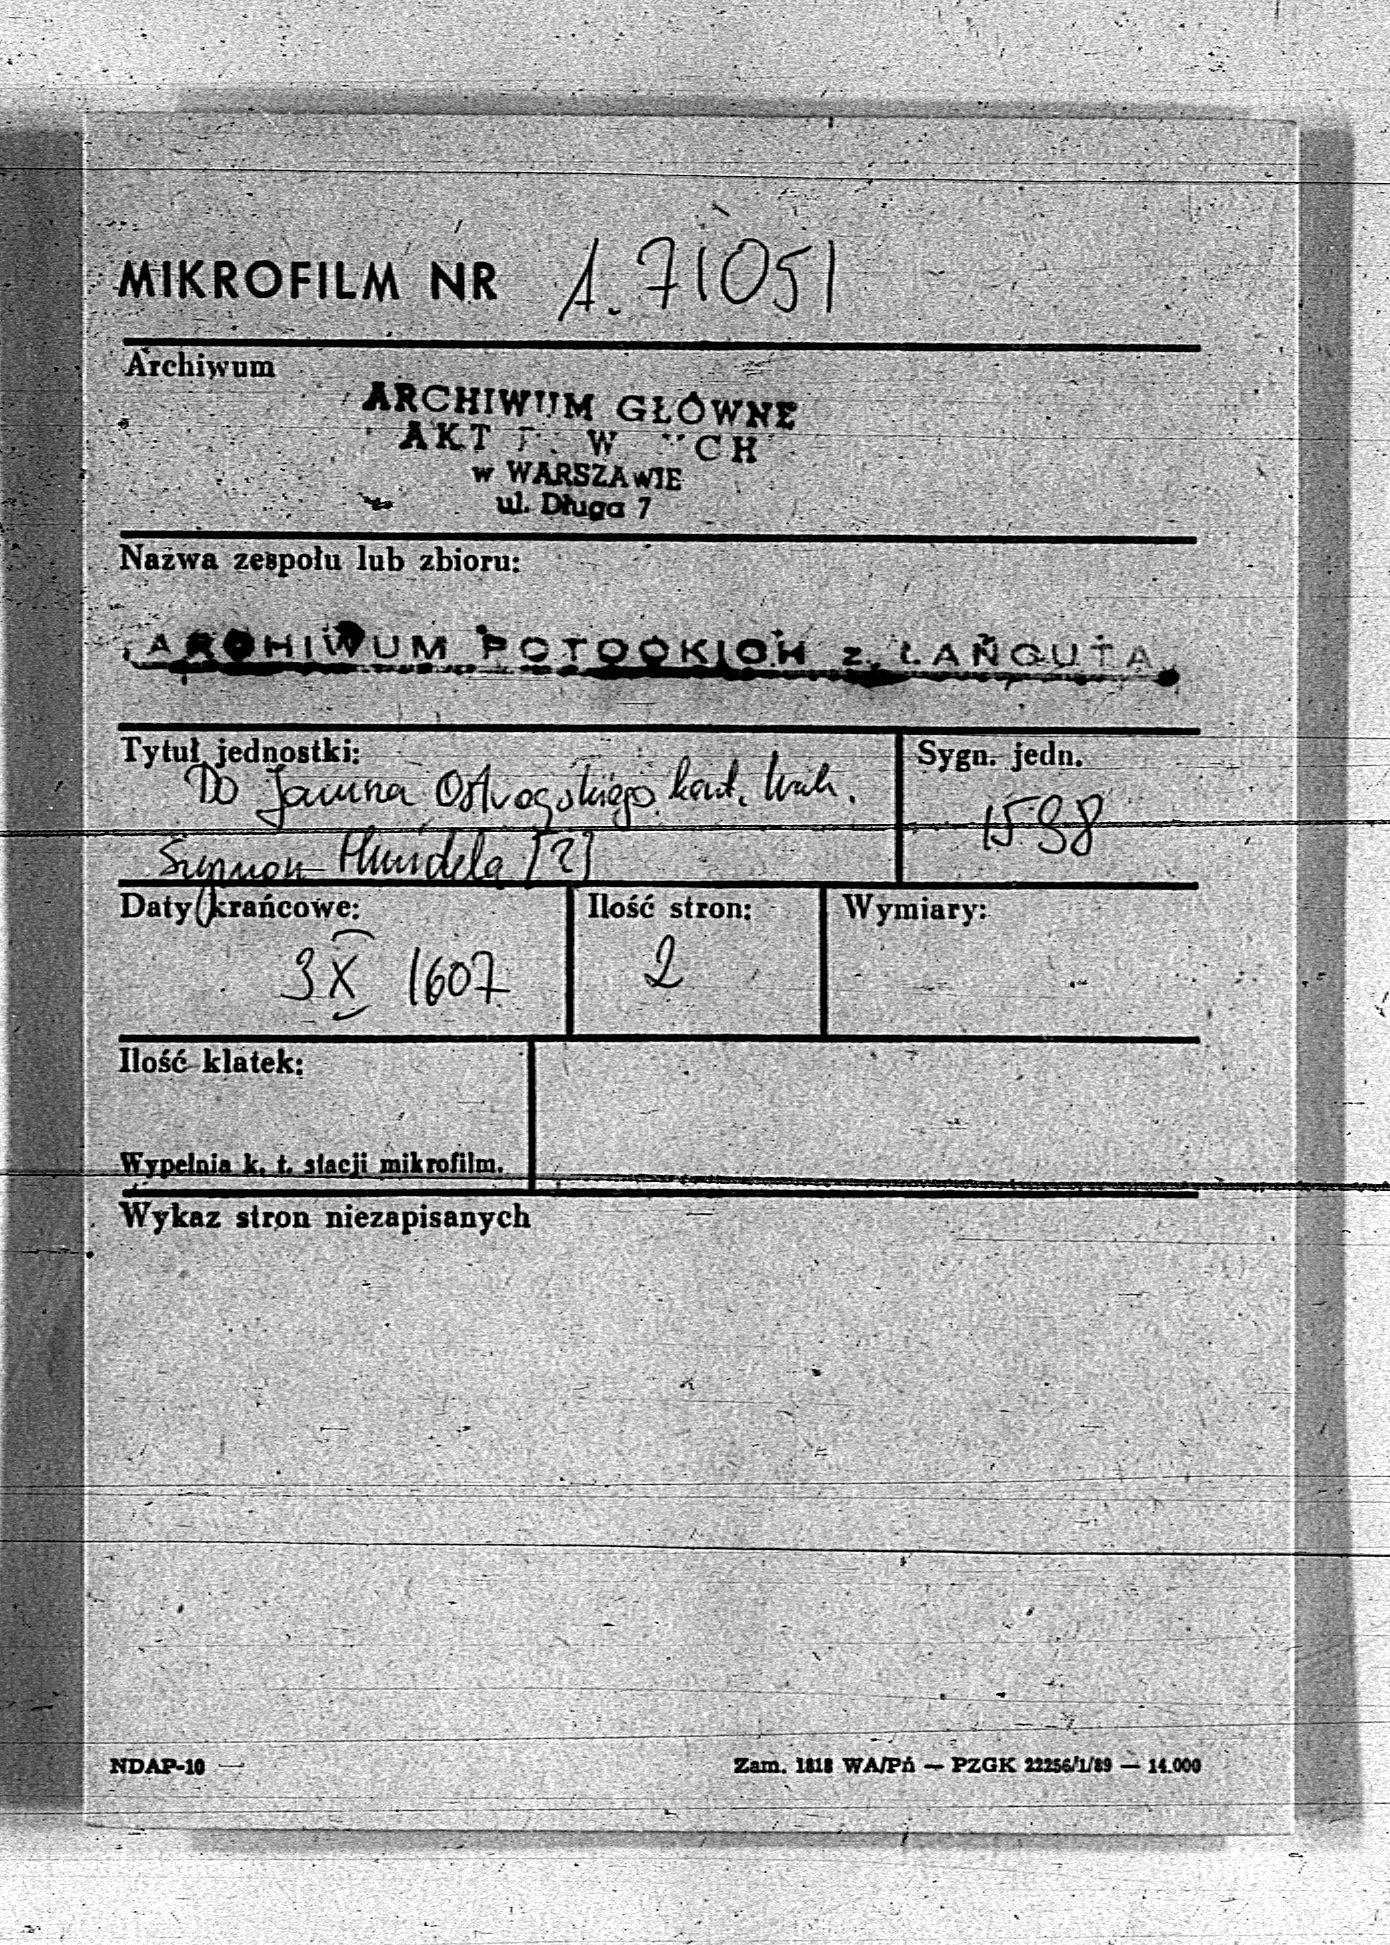 MIKROFILM NR A. 71051
Archiwum
ARCHIWUM GŁÓWNE
AKT
w WARSZAWIE
ul. Długa 7
Nazwa zespołu lub zbioru:
ARCHIWUM POTOCKICH z ŁAŃCUTA
Tytuł jednostki:
Do Janusza Ostrogskiego kaszt. krak.
Szymon [?]
Sygn. jedn.
1598
Daty krańcowe:
3 X 1607
Ilość stron:
2
Wymiary:
Ilość klatek:
Wypełnia k. t. stacji mikrofilm.
Wykaz stron niezapisanych
NDAP-10
Zam. 1818 WA/Pń — PZGK 22256/1/89 — 14.000